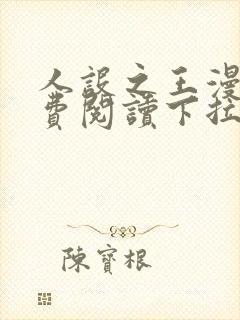 人設之王漫
費閱讀下拉
陳寶根